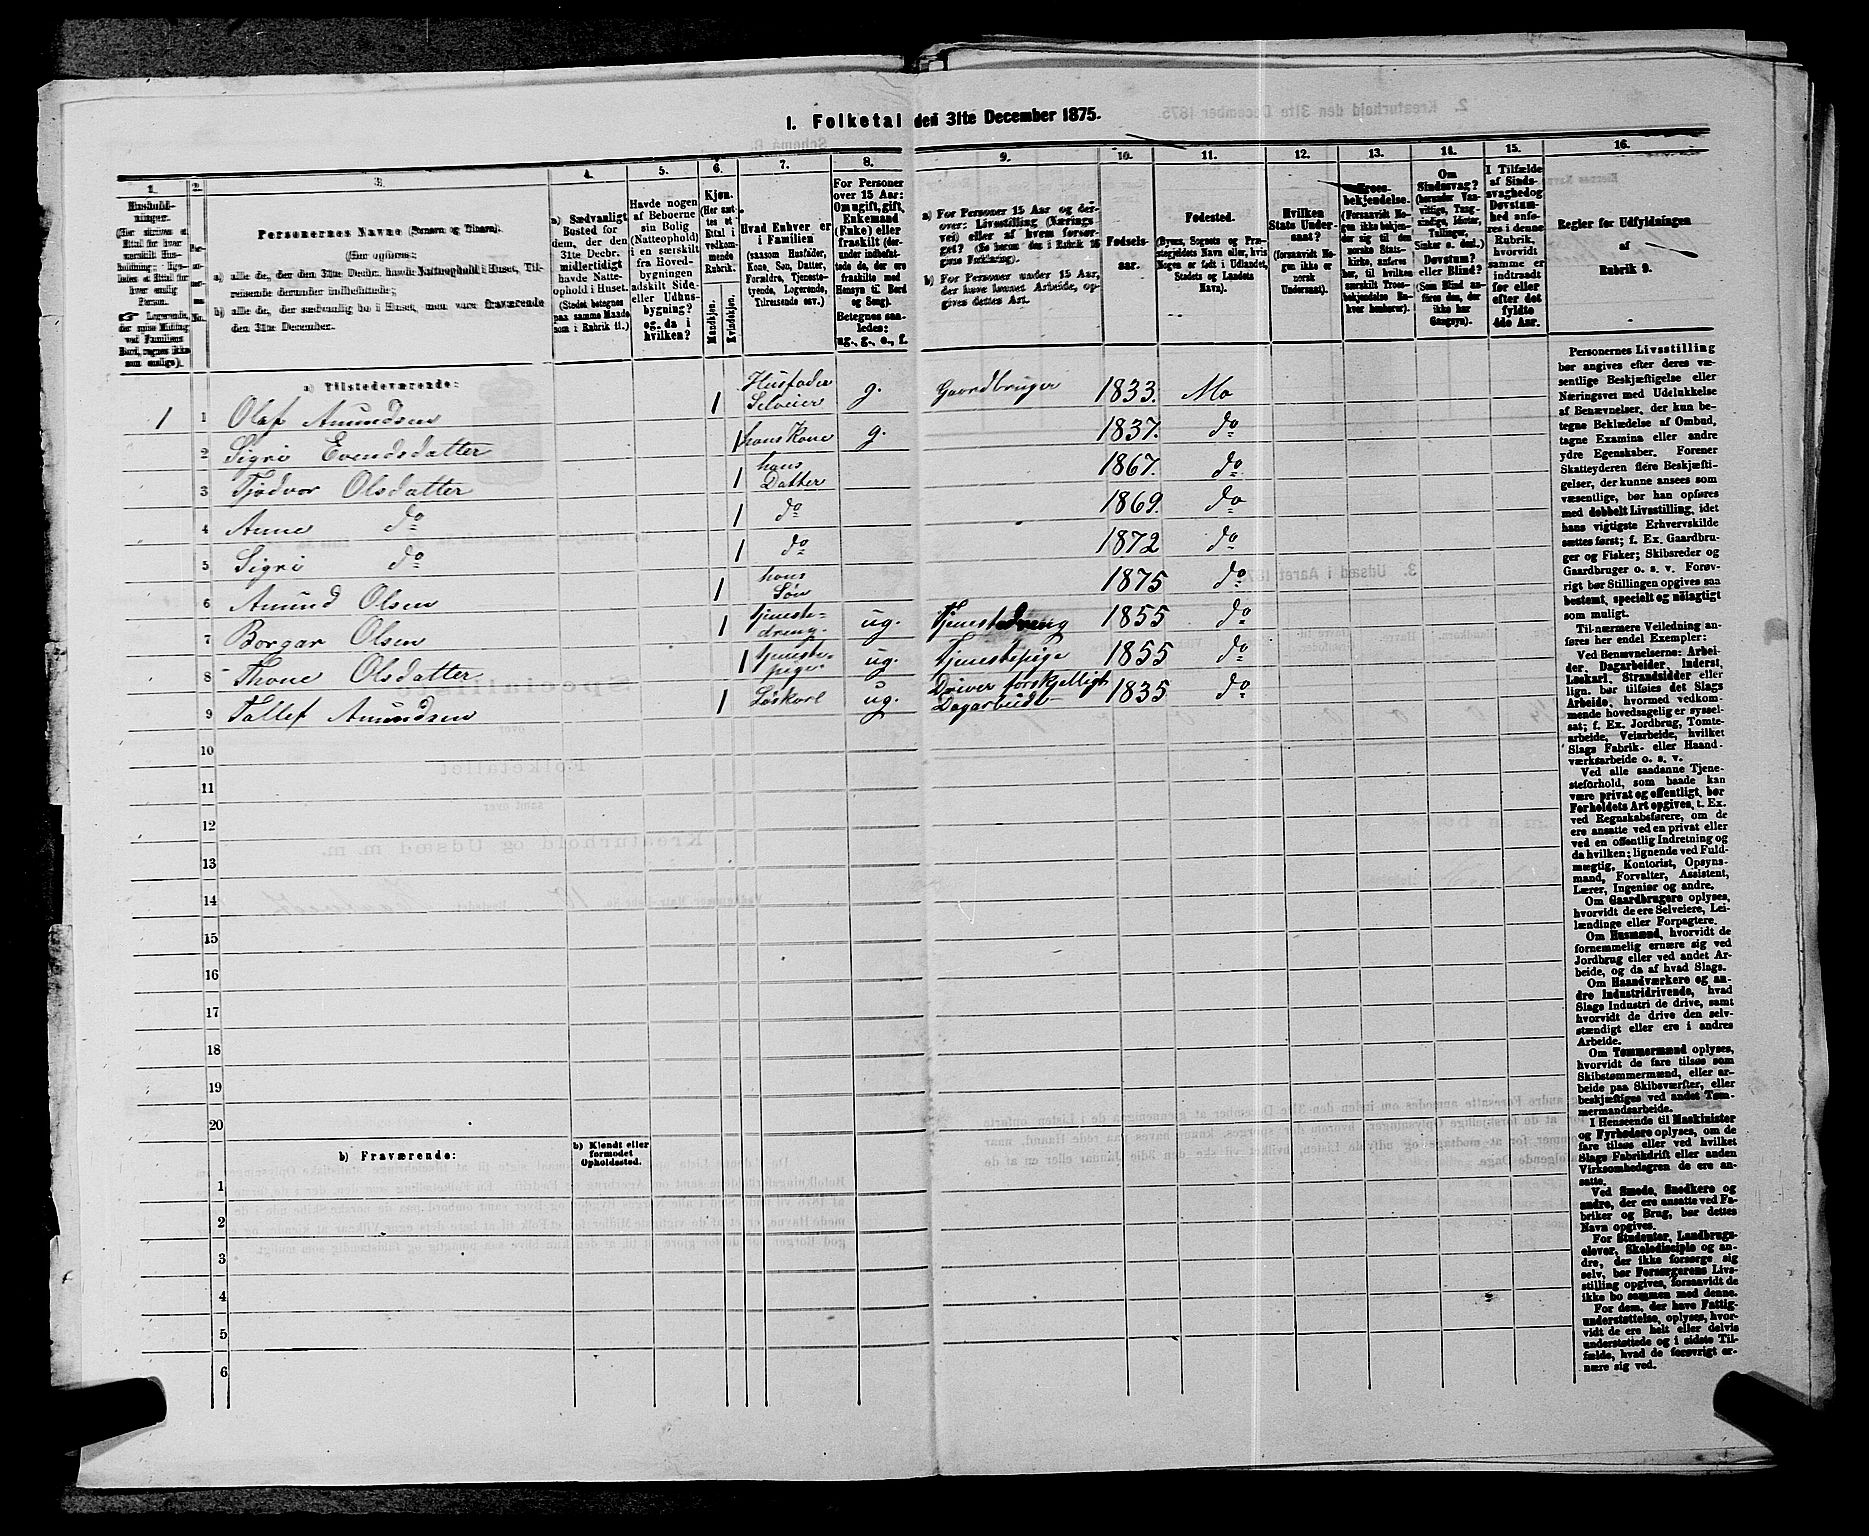 1. Folketal den 31te December 1875.
1. 2. 3. 4. 5. 6. 7. 8. 9. 10. 11. 12. 13. 14. 15. 16.
Personernes Navne (Fornavn og Tilnavn).
(Her opføres:
a) alle de, der den 31te Decbr. havde Natteophold i Huset, Tilreisende derunder indbefattede;
b) alle de, der sædvanlig bo i Huset, men vare fraværende den 31te December.
a) Sædvanligt Bosted for dem, der den 31te Decbr. midlertidigt havde Natteophold i Huset. (Stedet betegnes paa samme Maade som i Rubrik 11.)
Havde nogen af Beboerne sin Bolig (Natteophold) i en særskilt fra Hovedbygningen adskilt Side- eller Udhusbygning? og da i hvilken?
Kjøn. (Her sættes et Ettal i vedkommende Rubrik.
Mandkjøn. Kvindekjøn.
Hvad Enhver er i Familien (saasom Husfader, Kone, Søn, Datter, Forældre, Tjenestetyende, Logerende, Tilreisende osv.)
For Personer over 15 Aar: Om ugift, gift, Enkemand (Enke) eller fraskilt (derunder indbefattede de, der ere fraskilte med Hensyn til Bord og Seng). Betegnes saaledes: ug., g., e., f.
a) For Personer 15 Aar og derover: Livsstilling (Næringsvei) eller af hvem forsørget? (Se herom den i Rubrik 16 givne Forklaring).
b) For Personer under 15 Aar, der have lønnet Arbeide, opgives dettes Art.
Fødselsaar.
Fødested.
(Byens, Sognets og Præstegjeldets Navn, eller, hvis Nogen er født i Udlandet, Stedets og Landets Navn).
Hvilken Stats Undersaat? (forsaavidt Nogen ikke er norsk Undersaat).
Troesbekjendelse. (Forsaavidt Nogen ikke bekjender sig til den norske Statskirke, anføres her, til hvilken særskilt Troesbekjendelse Enhver henhører).
Om Sindssvag? Døvstum? eller Blind? (Som Blind anføres den, der ikke har Gangsyn).
I Tilfælde af Sindssvaghed og Døvstumhed anføres i denne Rubrik, hvorvidt samme er indtraadt før eller efter det fyldte 4de Aar.
Regler for Udfyldningen
af
Rubrik 9.
a) Tilstedeværende:
1 1 Olaf Amundsen 1 Husfader Selveier g. Gaardbruger 1833. Mo
2 Sigri Evendsdatter 1 hans Kone g. 1837. do
3 Tjodvor Olsdatter 1 hans Datter 1867. do
4 Anne do 1 do 1869. do
5 Sigri do 1 do 1872 do
6 Amund Olsen 1 hans Søn 1875 do
7 Borgar Olsen 1 tjenestedreng ug. Tjenestedreng 1855 do
8 Thone Olsdatter 1 tjenestepige ug. Tjenestepige 1855 do
9 Tallef Amundsen 1 Løskarl ug. Driver forskjelligt Dagarbeide 1835 do
10
11
12
13
14
15
16
17
18
19
20
b) Fraværende:
b) Kjendt eller formodet Opholdssted.
1
2
3
4
5
6
Personernes Livsstilling
bør angives efter deres væ-
sentlige Beskjæftigelse eller
Næringsvei med Udelukkelse
af Benævnelser, der kun be-
tegne Beklædelse af Ombud,
tagne Examina eller andre
ydre Egenskaber. Forener
Skatteyderen flere Beskjæfti-
gelser, der kunne ansees som
væsentlige, bør han opføres
med dobbelt Livsstilling, idet
hans vigtigste Erhvervskilde
sættes først; f. Ex. Gaardbru-
ger og Fisker; Skibsreder og
Gaardbruger o. s. v. Forøv-
rigt bør Stillingen opgives saa
bestemt, specielt og nøiagtigt
som muligt.
Til nærmere Veiledning an-
føres her endel Exempler:
Ved Benævnelserne: Arbei-
der, Dagarbeider, Inderst,
Løskarl, Strandsidder eller
lign. bør tilføies det Slags
Arbeide, hvormed vedkom-
mende hovedsagelig er syssel-
sat; f. Ex. Jordbrug, Tomte-
arbeide, Veiarbeide, hvilket
Slags Fabrik- eller Haand-
værksarbeide o. s. v.
Ved alle saadanne Tjene-
steforhold, som baade kan
være privat og offentligt, bør
Forholdets Art opgives, t. Ex.
ved Regnskabsførere, om de
ere ansatte ved en privat eller
ved en offentlig Indretning og
da hvilken; lignende ved Fuld-
mægtig, Kontorist, Opsyns-
mand, Forvalter, Assistent,
Lærer, Ingeniør og andre.
Om Gaardbrugere oplyses,
hvorvidt de ere Selveiere, Lei-
lændinge eller Forpagtere.
Om Husmænd, hvorvidt de
fornemmelig ernære sig ved
Jordbrug eller ved andet Ar-
beide, og da af hvad Slags.
Om Haandværkere og an-
dre Industridrivende, hvad
Slags Industri de drive, samt
hvorvidt de drive den selv-
stændigt eller ere i andres
Arbeide.
Om Tømmermænd oplyses,
hvorvidt de fare tilsøs som
Skibstømmermænd, eller ar-
beide paa Skibsværfter, eller
beskjæftiges ved andet Tøm-
mermandsarbeide.
I Henseende til Maskinister
og Fyrbødere oplyses, om de
fare tilsøs eller ved hvilket
Slags Fabrikdrift eller anden
Virksomhedsgren de ere an-
satte.
Ved Smede, Snedkere og
andre, der ere ansatte ved Fa-
briker og Brug, bør dettes
Navn opgives.
For Studenter, Landbrugs-
elever, Skoledisciple og an-
dre, der ikke forsørge sig
selv, bør Forsørgerens Livs-
stilling opgives, forsaavidt de
ikke bo sammen med denne.
For dem, der have Fattig-
understøttelse, oplyses, hvor-
vidt de ere helt eller delvis
understøttede og i sidste Til-
fælde, hvad de forøvrigt er-
nære sig ved.